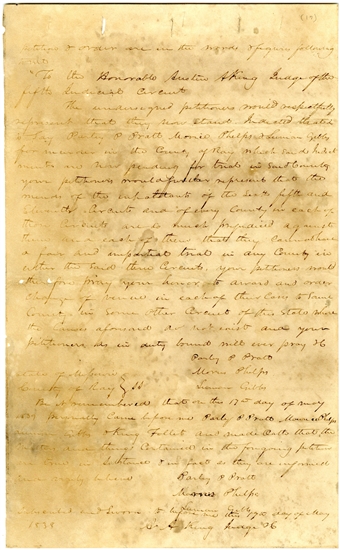 (19)
petition & order are in the words & figures following
To the Honorable Austin A King Judge of the
fifth Judicial Circuit
The undersigned petitioners would respectfully
represent that they now stand Indicted
Parley P Pratt Morris Phelps & Luman Gibbs
for murder in the County of Ray which said Indict
ments are now pending for trial in said County
your petitioners would further represent that the
minds of the inhabitants of the fifth and
Eleventh Circuits and of every County in each of
the Circuits are so much prejudiced against
them and each of them that they cannot have
a fair and impartial trial in any County in
either the said three Circuits, your petitioners would
therefore pray your honor to award and order
Change of venue in each of these Cases to some
County in some other Circuit of the State where
the Causes aforesaid do not exist and your
Petitioners as in duty bound will ever pray &c
Parley P Pratt
State of Missouri Morris Phelps
County of Ray SS Luman Gibbs
Be it remembered that on the 17th day of may
Came before me Parley P Pratt Morris Phelps
King Follet and made oath that the
matters and things Contained in the foregoing petition
are true in Substance & in fact as they are informed
and verily believe Parley P Pratt
Morris Phelps
Luman Gibbs
Subscribed and Sworn to before me this 17th day of May
1839 A A King Judge &c